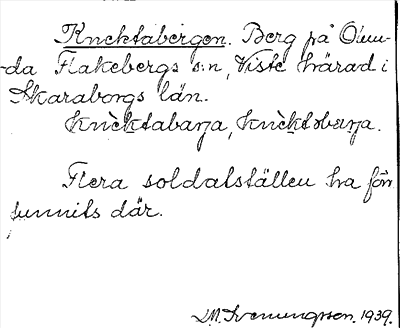 Knektabergen. Berg på Öiun-
da Flakebergs s:n, Viste härad i
Skaraborgs län.
knèktabarja, knèktəbarja.
Flera soldatställen ha för
sunnits där.
D.M. Svenungsson. 1939.